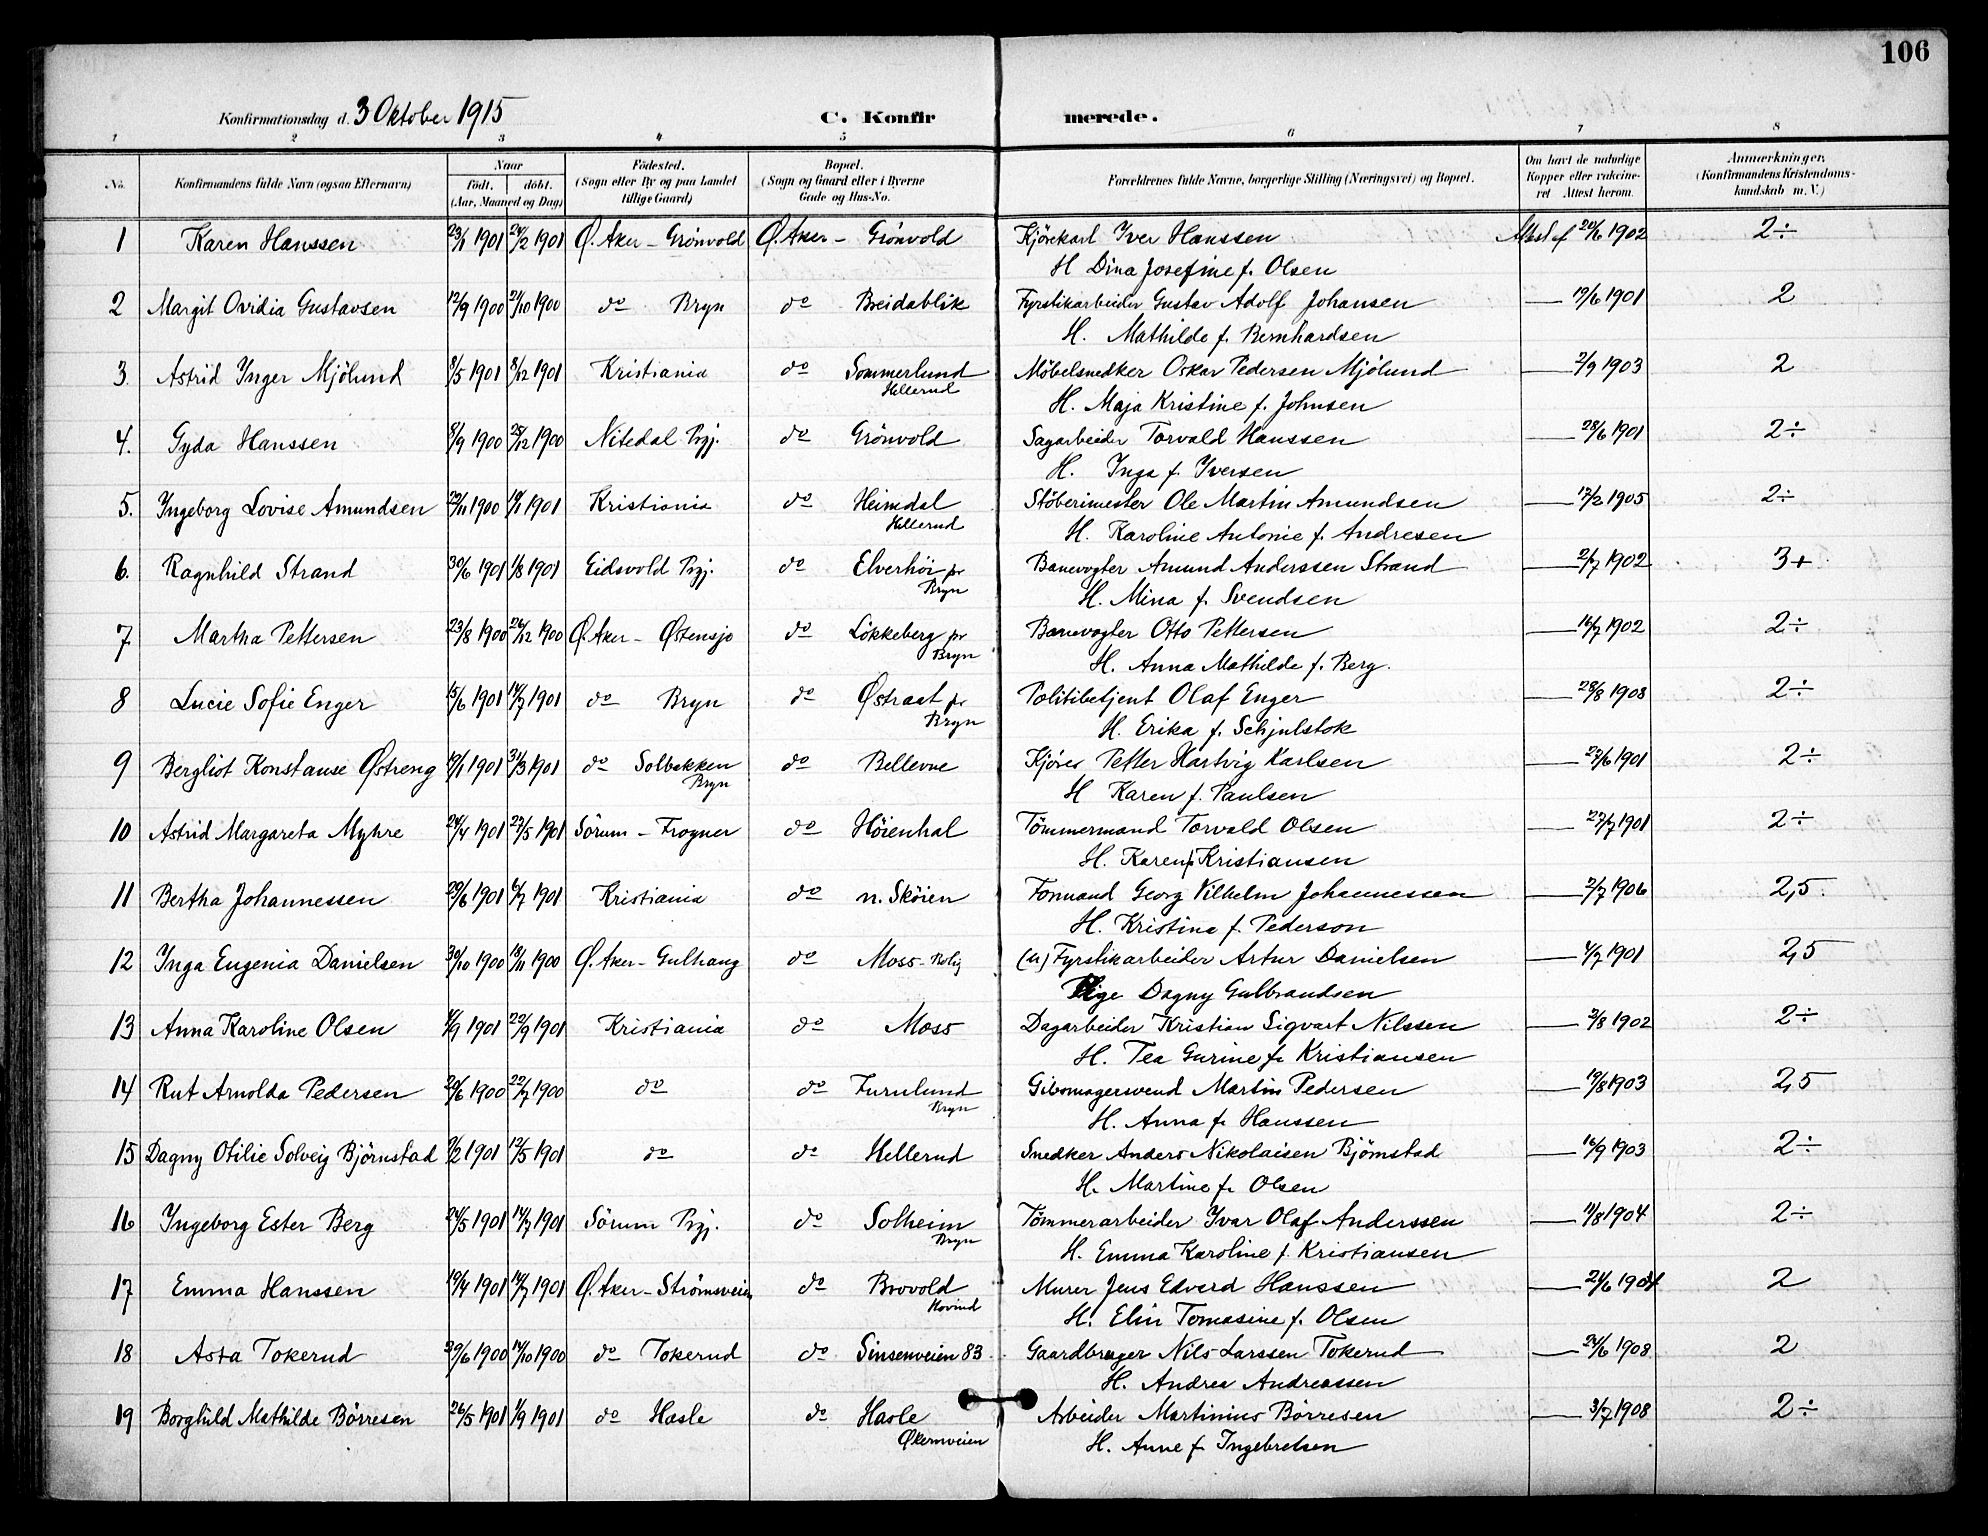 106
Konfirmationsdag d. 3 Oktober 1915 C. Konfirmerede.
1 2 3 4 5 6 7 8
No. Konfirmandens fulde Navn (ogsaa Efternavn) Naar født. døbt. (Aar, Maaned og Dag) Fødested. (Sogn eller By og paa Landet tillige Gaard) Bopæl. (Sogn og Gaard eller i Byerne Gade og Hus-No. Forældrenes fulde Navne, borgerlige Stilling (Næringsvei) og Bopæl. Om havt de naturlige Kopper eller vakcineret Attest herom. Anmærkninger. (Konfirmandens Kristendomskundskab m. V.)
1 Karen Hanssen 23/1 1901 24/2 1901 Ø. Aker - Grönvold Ø. Aker - Grönvold Kjörekarl Iver Hanssen Attest af 20/6 1902 2÷
H Dina Josefine f. Olsen
2 Margit Ovidia Gustavsen 12/9 1900 21/10 1900 do Bryn do Breidablik Fyrstikarbeider Gustav Adolf Johansen — 19/6 1901 2
H. Mathilde f. Bernhardsen
3. Astrid Inger Mjölund 8/5 1901 8/12 1901 Kristiania do Sommerlund Möbelsnedker Oskar Pedersen Mjölund — 2/9 1903 2
Hellerud
H. Maja Kristine f. Johnsen
4. Gyda Hanssen 8/9 1900 25/12 1900 Nitedal Pgj. do Grönvold Sagarbeider Torvald Hanssen — 28/6 1901 2÷
H. Inga f. Iversen
5. Ingeborg Lovise Amundsen 29/11 1900 1901 Kristiania do Heimdal Støberimester Ole Martin Amundsen — 1905 2÷
Hellerud
H. Karoline Antonie f. Andresen
6. Ragnhild Strand 30/6 1901 1/8 1901 Eidsvold Pgj. do Elverhöi pr Banevogter Amund Anderssen Strand — 2/7 1902 3+
Bryn
H. Mina f. Svendsen
7 Martha Pettersen 23/8 1900 26/12 1900 Ø. Aker - Østensjo do Lökkeberg pr Banevogter Otto Pettersen — 16/7 1902 2÷
Bryn
H. Anna Mathilde f. Berg.
8 Lucie Sofie Enger 15/6 1901 14/7 1901 do Bryn do Østraat pr Politibetjent Olaf Enger — 28/8 1908 2÷
Bryn
H. Erika f. Schjulstok
9 Bergliot Konstanse Østreng 1901 31/3 1901 do Solbakken do Bellevue Kjörer Petter Hartvig Karlsen — 27/6 1901 2÷
Bryn
H Karen f. Paulsen
10 Astrid Margareta Myhre 24/4 1901 1901 Sörum - Frogner do Höienhal Tömmermand Torvald Olsen — 27/7 1901 2÷
H. Karen f. Kristiansen
11 Bertha Johannessen 1901 1901 Kristiania do n. Sköien Formand Georg Vilhelm Johannessen — 2/7 1906 2,5
H. Kristine f. Pederson
12 Inga Eugenia Danielsen 30/10 1900 18/11 1900 Ø. Aker - Gulhaug do Moss-Bolig (u) Fyrstikarbeider Artur Danielsen — 4/7 1901 2,5
Pige Dagny Gulbrandsen
13 Anna Karoline Olsen 1901 1901 Kristiania do Moss Dagarbeider Kristian Sigvart Nilssen — 1902 2÷
H. Tea Gurine f. Kristiansen
14 Rut Arnolda Pedersen 20/6 1900 22/7 1900 do do Furulund Gibsmagersvend Martin Pedersen — 19/8 1903 2,5
Bryn
H. Anna f. Hanssen
15 Dagny Otilie Solveig Björnstad 1901 12/5 1901 do do Hellerud Snedker Anders Nikolaisen Björnstad — 16/9 1903 2÷
H. Martine f. Olsen
16 Ingeborg Ester Berg 24/5 1901 14/7 1901 Sörum Pgj. do Solheim Tömmerarbeider Ivar Olaf Anderssen — 1904 2÷
Bryn
H. Emma Karoline f. Kristiansen
17 Emma Hanssen 19/4 1901 14/7 1901 Ø. Aker - Strömsveien do Brovold Murer Jens Edverd Hanssen — 2
Hovind
H. Elin Tomasine f. Olsen
18 Asta Tokerud 30/6 1900 14/10 1900 do Tokerud do Sinsenveien 83 Gaardbruger Nils Larssen Tokerud — 24/6 1908 2
H. Andrea Andreassen
19 Borghild Mathilde Börresen 26/5 1901 1/9 1901 do Hasle do Hasle Arbeider Martinius Börresen — 3/7 1908 2÷
Økernveien
H. Anne f. Ingebretsen